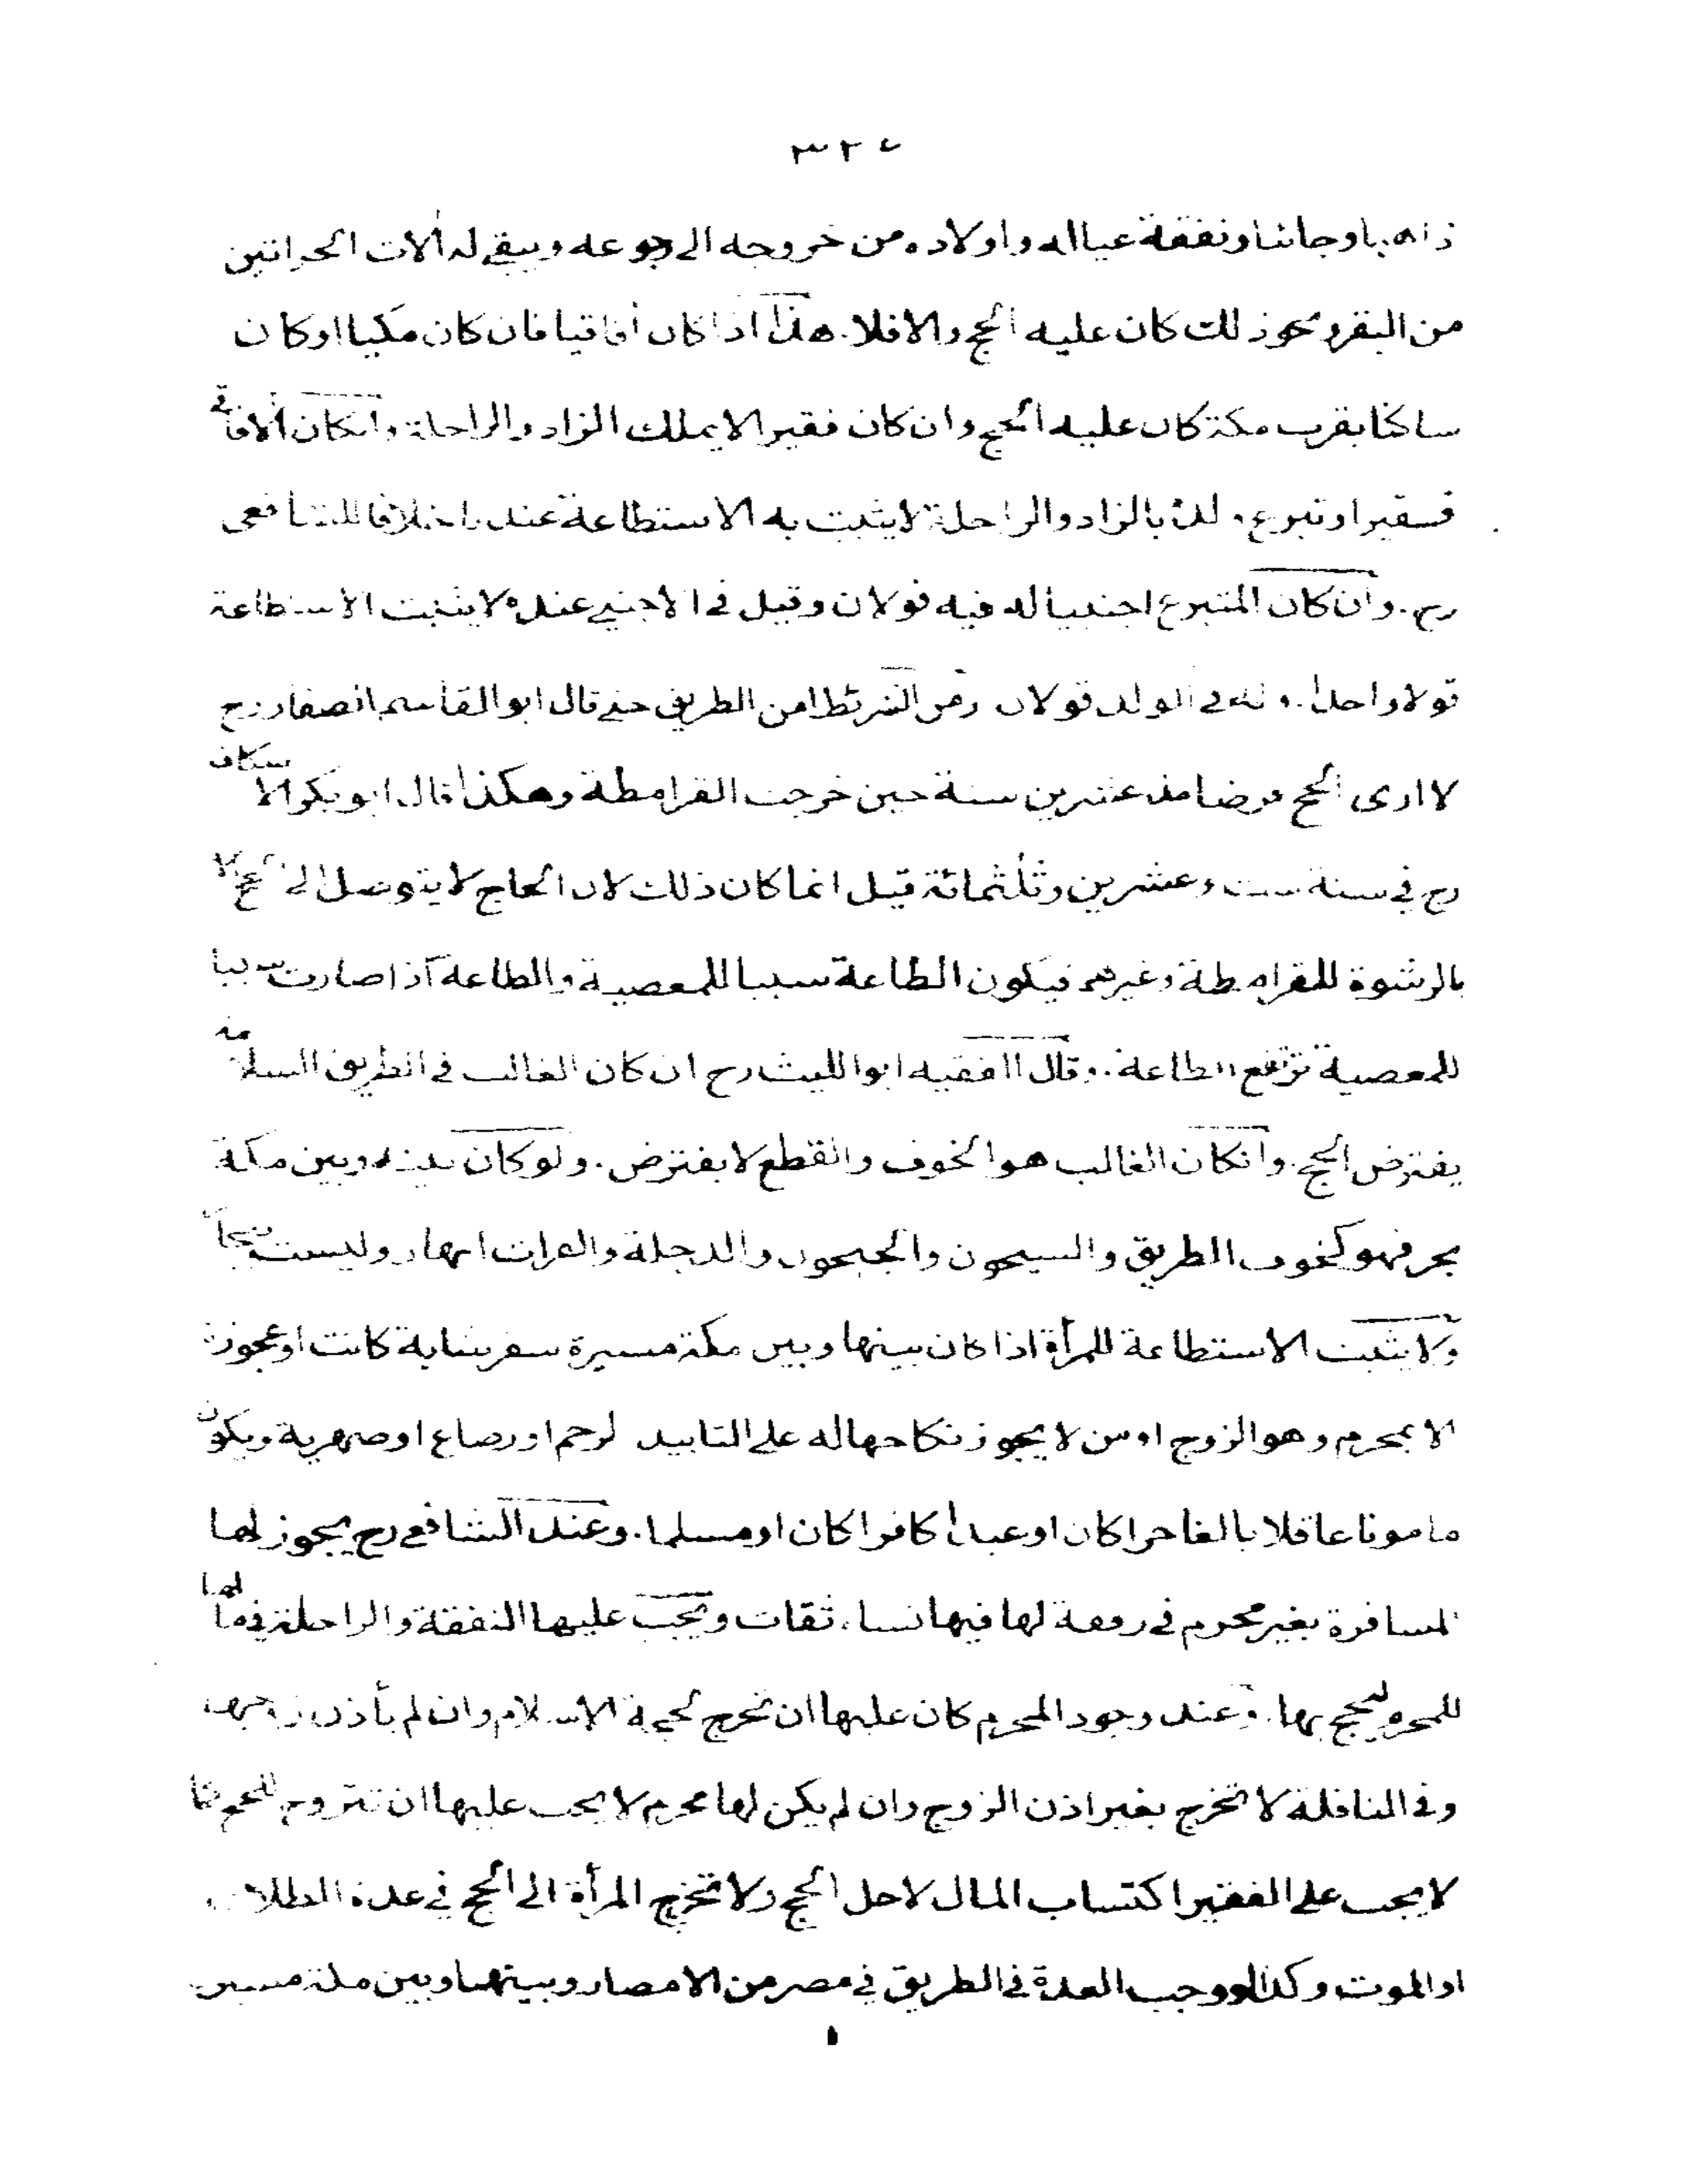 ذاهبا وجائيا ونفقة عياله واولاده من خروجه الى رجوعه ويبقى له ألات الحراثين
من البقر ونحو ذلك كان عليه الحج والا فلا. هذا اذا كان أفاقيا فان كان مكيا اوكان
ساكنا بقرب مكة كان عليه الحج وان كان فقيرا لا يملك الزاد والراحلة وانكان ألافاقى
فقيرا وتبرع ولده بالزاد والراحلة لا يثبت به الاستطاعة عندنا خلافا للشافعى
رح. وان كان المتبرع اجنبيا له فيه قولان وقيل فى الاجنبى عنده لا يثبت الاستطاعة
قولا واحدا. وله فى الولد قولان ومن الشرئط امن الطريق حتى قال ابو القاسم الصفار رح
لا ارى الحج فرضا منذ عشرين سنة حين خرجت القرامطة وهكذا قال ابو بكر الاسكاف
رح في سنة ست وعشرين وثلثمائة قيل انما كان ذلك لان الحاج لا يتوصل الى الحج الا
بالرشوة للقرامطة وغيرهم فيكون الطاعة سببا للمعصية والطاعة اذا صارت سببا
للمعصية ترتفع الطاعة. وقال الفقيه ابو الليث رح ان كان الغالب فى الطريق السلامة
يفترض الحج. وانكان الغالب هو الخوف والقطع لا يفترض. ولوكان بينه وبين مكة
بحر فهو كخوف الطريق والسيحون والجيحون والدجلة والفرات انهار وليست بحارا
ولا يثبت الاستطاعة للمرأة اذا كان بينها وبين مكة مسيرة سفر شابة كانت او عجوزة
الا بمحرم وهو الزوج او من لا يجوز نكاحها له على التابيد لرحم او رضاع او صهرية ويكون
مامونا عاقلا بالغا حرا كان او عبدا كافرا كان او مسلما. وعند الشافعى رح يجوز لها
المسافرة بغير محرم فى رفقة لها فيها نساء ثقات ويجب عليها النفقة والراحلة في مالها
للمحرم ليحج بها. وعند وجود المحرم كان عليها ان تخرج لحجة الاسلام وان لم يأذن زوجها
وفى النافلة لا تخرج بغير اذن الزوج وان لم يكن لها محرم لا يجب عليها ان تتزوج للحج كما
لا يجب على الفقير اكتساب المال لاجل الحج ولا تخرج المرأة الى الحج في عدة الطلاق
او الموت وكذا لو وجب العدة فى الطريق في مصر من الامصار وبينها وبين مكة مسيرة